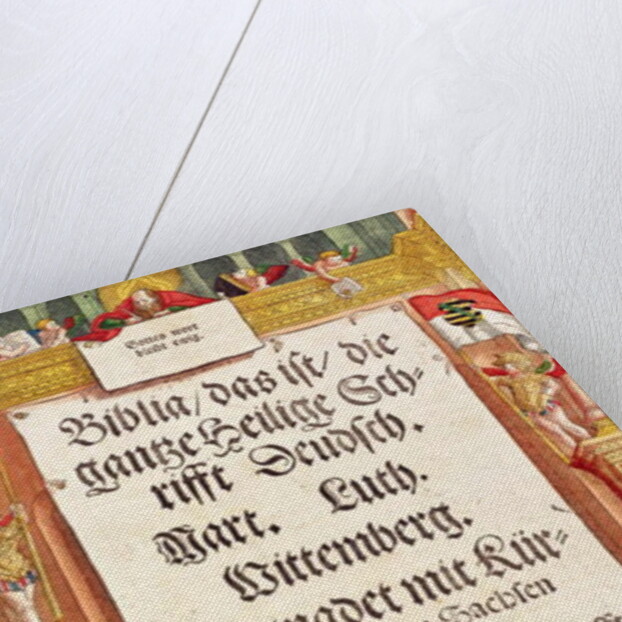 Gottes wort
bleibt ewig.
Biblia/das ist/die
gantze Heilige Sch=
rifft Deudsch.
Mart. Luth.
Wittemberg.
mit Kür=
Sachsen